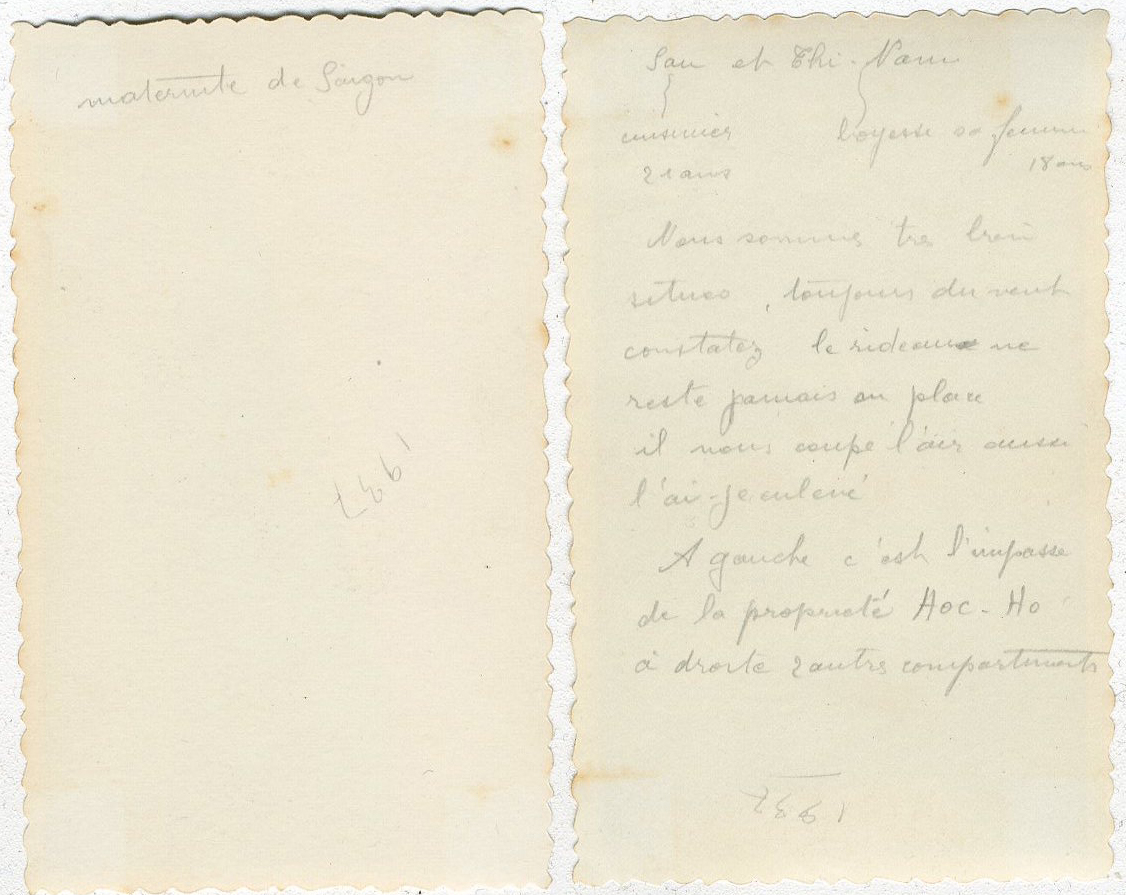 maternite de Saigon
1937
San et Thi-Nam
cuisinier boyesse sa femme
21 ans 18 ans
Nous sommes tres bien
situes, toujours du vent
constatez le rideau ne
reste jamais en place
il nous coupe l'air aussi
l'ai-je enlevé
A gauche c'est l'impasse
de la proprieté Hoc-Ho
à droite 2 autres compartiments
1937